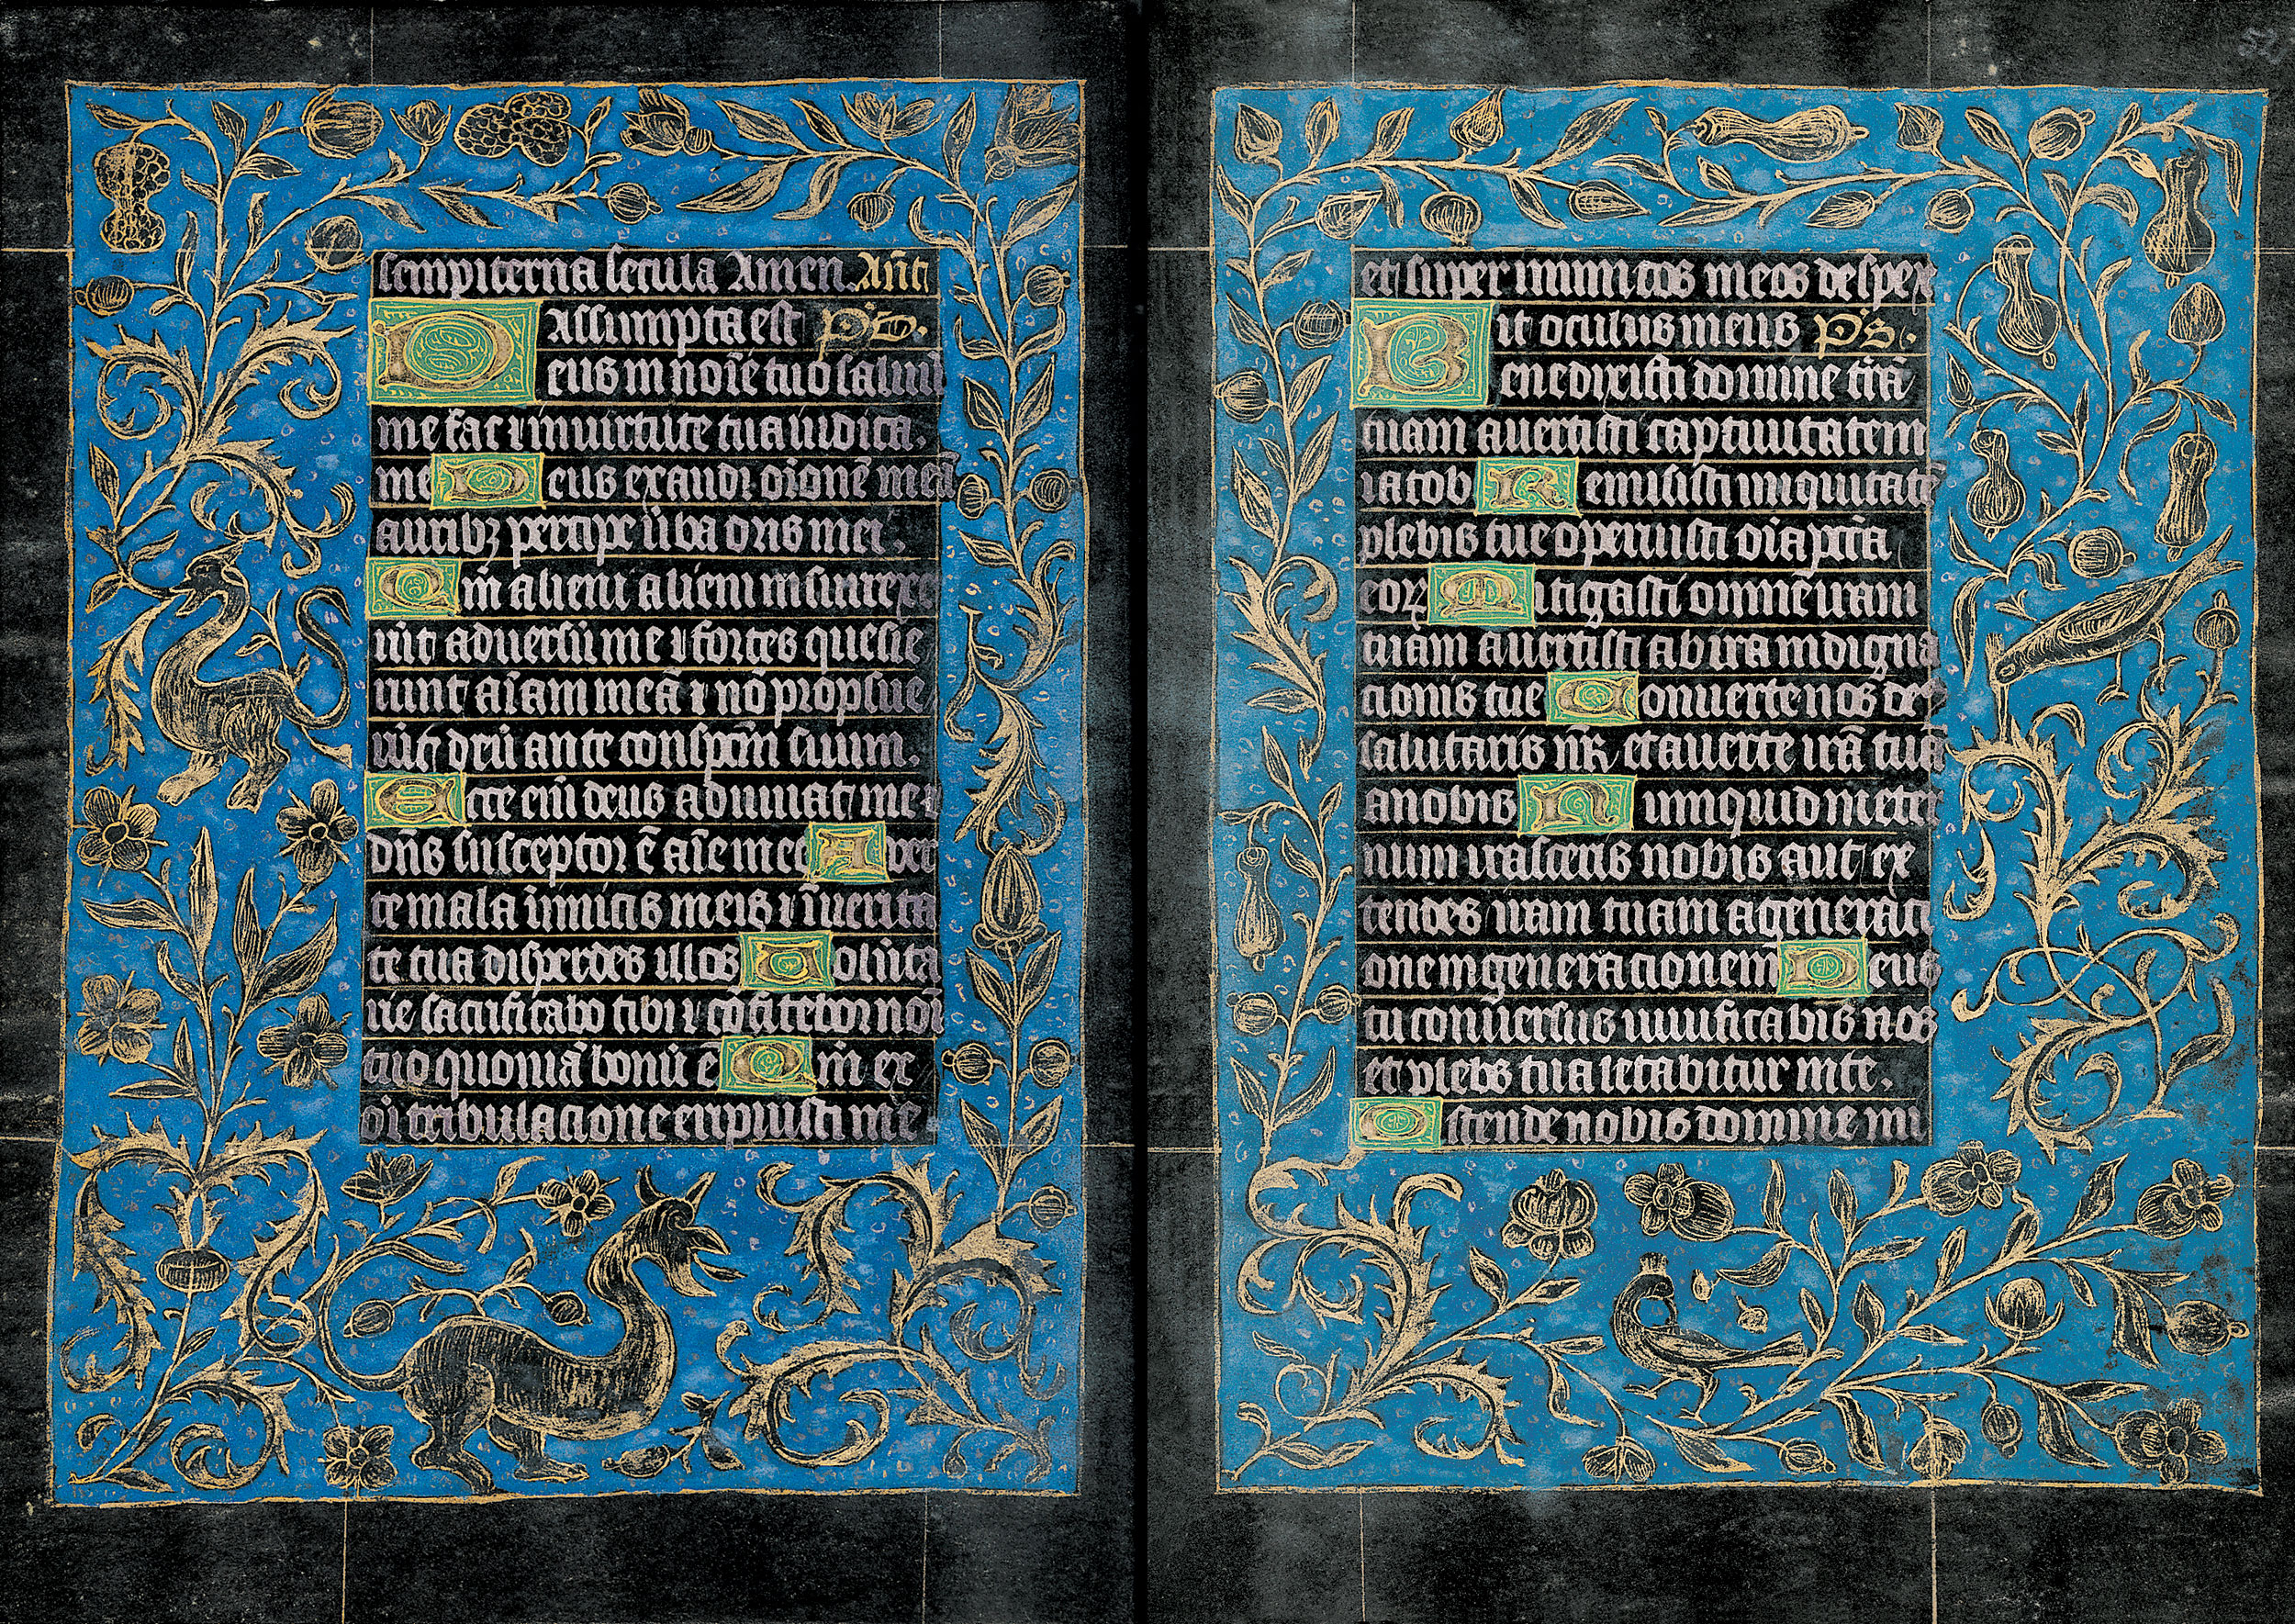 sempiterna secula Amen. Añt
Assumpta est Ps.
Deus in noīe tuo saluū
me fac ⁊ in uirtute tua iudica.
me Deus exaudi orōnē meā
auribꝫ percipe ūba oris mei.
Qm̄ alieni alieni insurrexe
rūt aduersū me ⁊ fortes quesie
runt aīam meā ⁊ nō propsue
rūt deū ante conspcm̄ suum.
Ecce eni deus adiuuat me ⁊
dn̄s susceptor ē aīe mee Auer
te mala īimicis meis ⁊ ī uerita
te tua disperdes illos Uolūta
rie sacrificabo tibi ⁊ cōfitebor noī
tuo quoniā bonū ē Qm̄ ex
oī tribulacione eripuisti me
et super inimicos meos despex
it oculus meus Ps.
Benedixisti domine trā
tuam auertisti captiuitatem
iacob Remisisti iniquitatē
plebis tue operuisti oīa pctā
eoꝝ Mitigasti omnē iram
tuam auertisti ab ira indigna
cionis tue Conuerte nos de
salutaris nr̄ et auerte irā tuā
a nobis Numquid in eter
num irasceris nobis aut ex
tendes iram tuam a generaci
one in generacionem Deus
tu conūersus uiuificabis nos
et plebs tua letabitur in te.
Ostende nobis domine mi